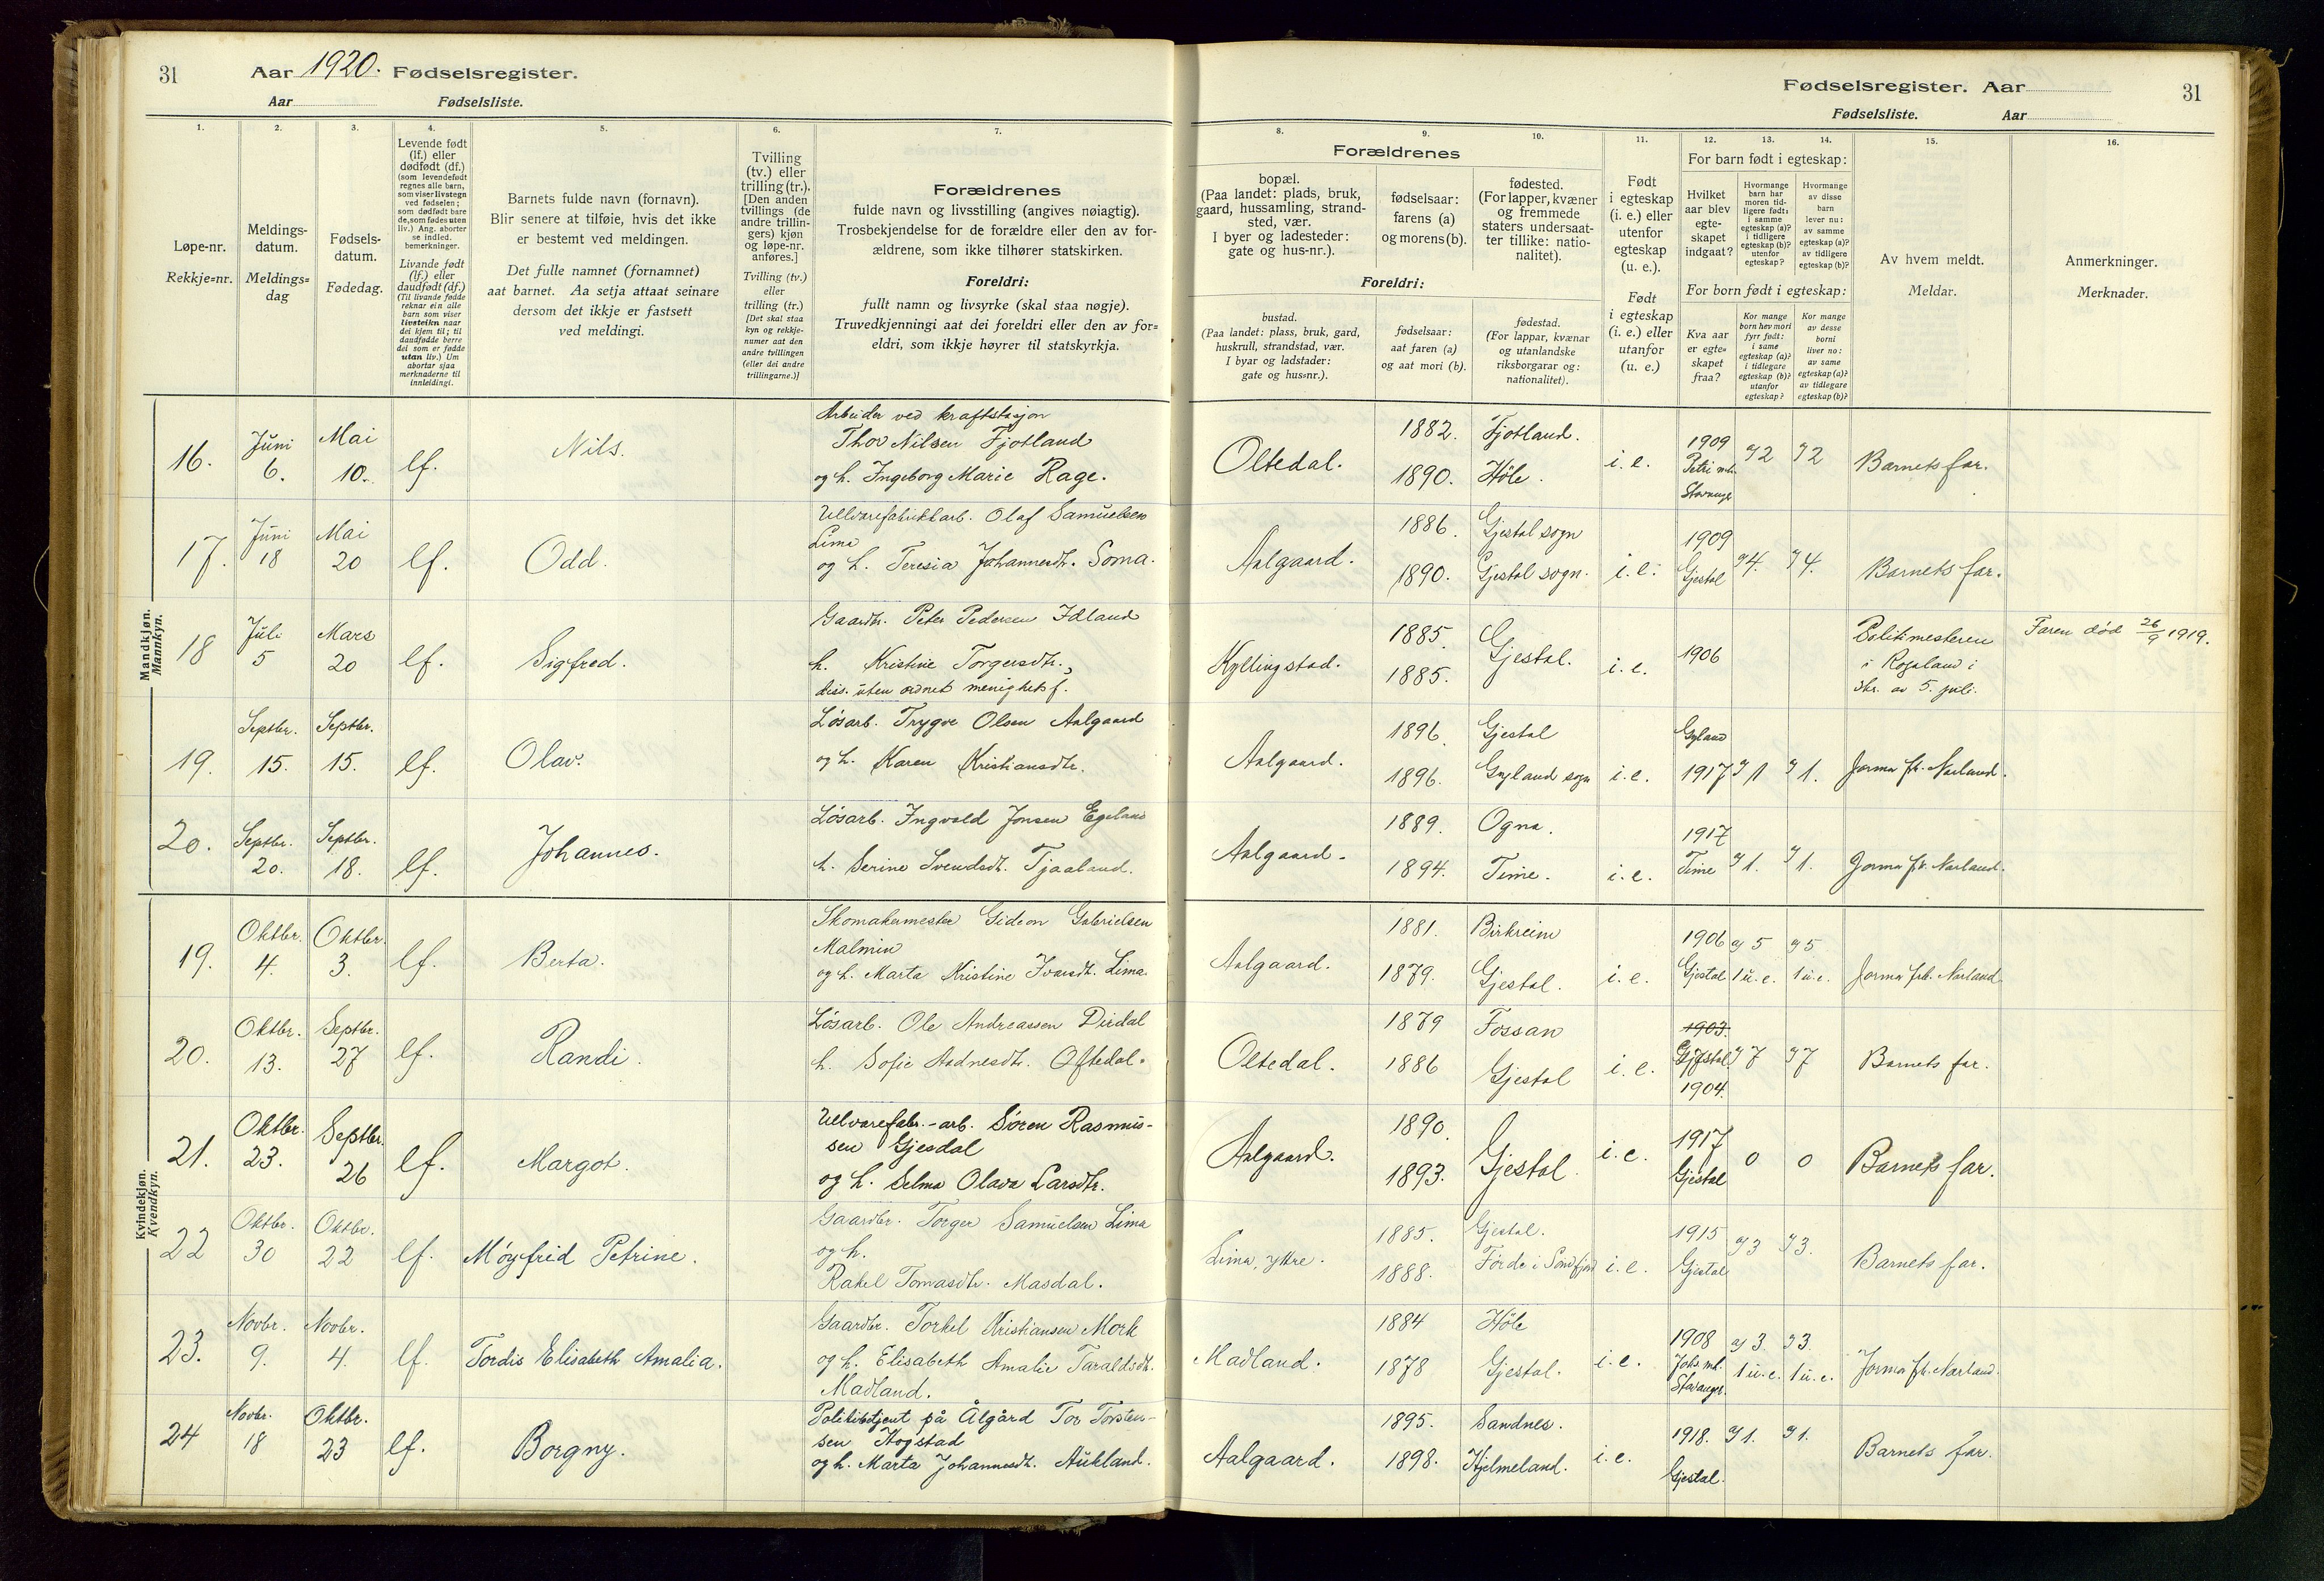 31
Aar 1920. Fødselsregister.
Aar Fødselsliste.
1.
2.
3.
4.
5.
6.
7.
Løpe-nr.
Rekkje=nr.
Meldings-
datum.
Meldings=
dag
Fødsels-
datum.
Fødedag.
Levende født
(lf.) eller
dødfødt (df.)
(som levendefødt
regnes alle barn,
som viser livstegn
ved fødselen;
som dødfødt bare
de, som fødes uten
liv.) Ang. aborter
se indled.
bemerkninger.
Livande født
(lf.) eller
daudfødt (df.)
(Til livande fødde
reknar ein alle
barn som viser
livsteikn naar
dei kjem til; til
daudfødde berre
dei som er fødde
utan liv.) Um
abortar sjaa
merknaderne til
innleidingi.
Barnets fulde navn (fornavn).
Blir senere at tilføie, hvis det ikke
er bestemt ved meldingen.
Det fulle namnet (fornamnet)
aat barnet. Aa setja attaat seinare
dersom det ikkje er fastsett
ved meldingi.
Tvilling
(tv.) eller
trilling (tr.).
[Den anden
tvillings (de
andre trillin-
gers) kjøn
og løpe-nr.
anføres.]
Tvilling (tv.)
eller
trilling (tr.)
[Det skal staa
kyn og rekkje-
numer aat den
andre tvillingen
(eller dei andre
trillingarne.)]
Forældrenes
fulde navn og livsstilling (angives nøiagtig).
Trosbekjendelse for de forældre eller den av for-
ældrene, som ikke tilhører statskirken.
Foreldri:
fullt namn og livsyrke (skal staa nøgje).
Truvedkjenningi aat dei foreldri eller den av for=
eldri, som ikkje høyrer til statskyrkja.
Mandkjøn.
Mannkyn.
16. Juni 6. Mai 10. lf. Nils.
Arbeider ved kraftstasjon
Thor Nilsen Fjotland
og h. Ingeborg Marie Rage.
17. Juni 18 Mai 20 lf. Odd.
Uldvarefabrikkarb. Olaf Samuelsen
Lima
og h. Teresia Johannesdtr. Soma.
18 Juli 5 Mars 20 lf. Sigfred.
Gaardbr. Peter Pedersen Idland
h. Kristine Torgersdtr.,
diss. uten ordnet menighetsf.
19. Septbr. 15. Septbr. 15. lf. Olav.
Løsarb. Trygve Olsen Aalgaard
og h. Karen Kristiansdtr.
20. Septbr. 20. Septbr. 18. lf. Johannes.
Løsarb. Ingvald Jonsen Egeland
h. Serine Svendsdtr. Tjaaland.
Kvindekjøn.
Kvendkyn.
19. Oktbr. 4. Oktbr. 3. lf. Berta.
Skomakermester Gideon Gabrielsen
Malmin
og h. Marta Kristine Ivarsdtr. Lima
20. Oktbr. 13. Septbr. 27 lf. Randi.
Løsarb. Ole Andreassen Dirdal
h. Sofie Aadnesdtr. Oftedal.
21. Oktbr. 23. Septbr. 26 lf. Margot.
Uldvarefabr.-arb. Søren Rasmus-
sen Gjesdal
og h. Selma Olava Larsdtr.
22 Oktbr. 30 Oktbr. 22 lf. Møyfrid Petrine.
Gaardbr. Torger Samuelsen Lima
og h.
Rakel Tomasdtr. Masdal.
23. Novbr. 9. Novbr. 4. lf. Tordis Elisabeth Amalia.
Gaardbr. Torkel Kristiansen Mork
og h. Elisabeth Amalie Taraldsdtr.
Madland.
24 Novbr. 18 Oktbr. 23 lf. Borgny.
Politibetjent på Ålgård Tor Torsten-
sen Hogstad
og h. Marta Johannesdt. Aukland.
Fødselsregister. Aar
31
Fødselsliste. Aar
8.
9.
10.
11.
12.
13.
14.
15.
16.
Forældrenes
bopæl.
(Paa landet: plads, bruk,
gaard, hussamling, strand-
sted, vær.
I byer og ladesteder:
gate og hus-nr.).
fødselsaar:
farens (a)
og morens (b).
fødested.
(For lapper, kvæner
og fremmede
staters undersaat-
ter tillike: natio-
nalitet).
Foreldri:
bustad.
(Paa landet: plass, bruk, gard,
huskrull, strandstad, vær.
I byar og ladstader:
gate og hus=nr.).
fødselsaar:
aat faren (a)
og aat mori (b).
fødestad.
(For lappar, kvænar
og utanlandske
riksborgarar og:
nationalitet).
Født
i egteskap
(i. e.) eller
utenfor
egteskap
(u. e.).
Født
i egteskap
(i. e.) eller
utanfor
(u. e.)
For barn født i egteskap:
Hvilket
aar blev
egte-
skapet
indgaat?
Hvormange
barn har
moren tid-
ligere født:
i samme
egteskap (a)?
i tidligere
egteskap (b)?
utenfor
egteskap?
Hvormange
av disse
barn
lever nu:
av samme
egteskap (a)?
av tidligere
egteskap (b)?
For born født i egteskap:
Kva aar
er egte=
skapet
fraa?
Kor mange
born hev mori
fyrr født:
i same
egteskap (a)?
i tidlegare
egteskap (b)?
utanfor
egteskap?
Kor mange
av desse
borni
liver no:
av same
egteskap (a)?
av tidlegare
egteskap (b)?
Av hvem meldt.
Meldar.
Anmerkninger.
Merknader.
Oltedal. 1882. 1890. Fjotland. Høle. i. e. 1909 Petri mh. Stavanger 2 2 Barnets far.
Aalgaard. 1886. 1890. Gjestal sogn Gjestal sogn. i. e. 1909 Gjestal 4. 4. Barnets far.
Kyllingstad. 1885. 1885. Gjestal. i. e. 1906
Politimesteren
i Rogaland i
skr. av 5. juli.
Faren død 26/9 1919.
Aalgaard. 1896. 1896. Gjestal Gyland sogn i. e. Gyland 1917 1 1. Jorma fr. Norland.
Aalgaard. 1889. 1894. Ogna. Time. i. e. 1917 Time 1. 1. Jorma fr. Norland.
Aalgaard. 1881. 1879. Birkreim Gjestal. i. e. 1906 Gjestal 5 1 u. e. 5 1 u. e. Jorma fr. Norland.
Oltedal. 1879 1886 Fossan Gjestal i. e. 1903. Gjestal 1904. 7 7 Barnets far.
Aalgaard. 1890. 1893. Gjestal. i. e. 1917 Gjestal 0 0 Barnets far.
Lima, ytre. 1885. 1888. Gjestal. Førde i Søndfjord i. e. 1915 Gjestal 3 3. Barnets far.
Madland. 1884 1878 Høle Gjestal. i. e. 1908 Joh. mh. Stavanger. 3. 1 u. e. 3. 1 u. e. Jorma fr. Norland.
Aalgaard. 1895. 1898. Sandnes. Hjelmeland. i. e. 1918. Gjestal. 1. 1. Barnets far.